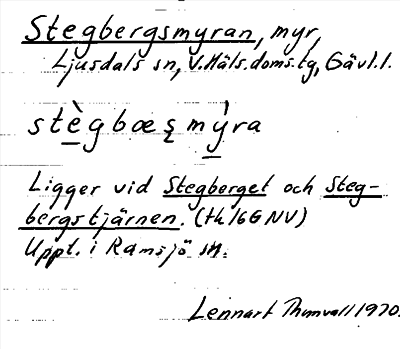 Stegbergsmyran, myr,
Ljusdals sn, V.Häls.doms.tg, Gävl.l.
stè̲gbœȿ mý̲ra
Ligger vid Stegberget och Steg-
bergstjärnen. (tk 16G NV)
Uppt. i Ramsjö sn.
Lennart Thunvall 1970.